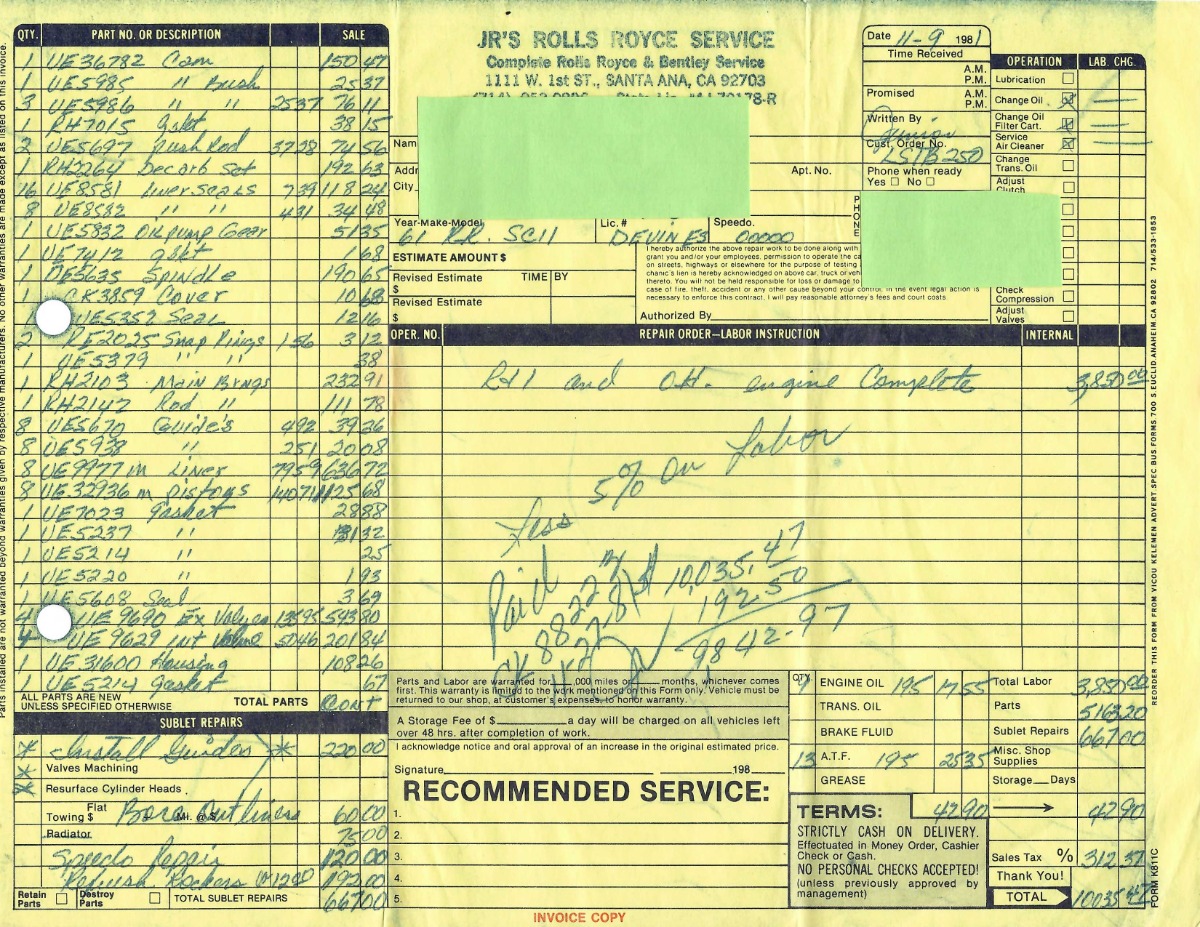 Parts installed are not warranted beyond warranties given by respective manufacturers. No other warranties are made except as listed on this invoice.
QTY. PART NO. OR DESCRIPTION SALE
1 UE36782 Cam 150 47
1 UE5985 " Bush 25 37
3 UE5986 " " 2537 76 11
1 RH7015 Gskt 38 15
2 UE5697 Push Rod 3728 74 56
1 RH2264 Decarb Set 192 63
16 UE8581 Liner Seals 739 118 24
8 UE8582 " " 431 34 48
1 UE5832 Oil pump Gear 51 35
1 UE7412 Gskt 1 68
1 UE5635 Spindle 190 65
CK3859 Cover 10 68
UE5352 Seal 12 16
2 RE2025 Snap Rings 156 3 12
1 UE5379 " " 38
1 RH2103 Main Brngs 232 91
1 RH2142 Rod " 111 78
8 UE5670 Guide's 492 39 36
8 UE5938 " 251 20 08
8 UE9977m Liner 7959 636 72
8 UE32936m Pistons 14071 1125 68
1 UE7023 Gasket 28 88
1 UE5237 " 31 32
1 UE5214 " 25
1 UE5220 " 1 93
1 UE5608 Seal 3 69
4 UE 9690 Ex Valves 13595 543 80
4 UE 9629 Int Valve 5046 201 84
1 UE31600 Housing 108 26
1 UE5214 Gasket 67
ALL PARTS ARE NEW
UNLESS SPECIFIED OTHERWISE TOTAL PARTS Cont
SUBLET REPAIRS
* Install Guides * 220 00
* Valves Machining
* Resurface Cylinder Heads
Towing $ Flat Mi. @ $ Bore Out liners 60 00
Radiator 75 00
Speedo Repair 120 00
Rebush Rockers @1200 192 00
Retain Parts Destroy Parts TOTAL SUBLET REPAIRS 667 00
JR'S ROLLS ROYCE SERVICE
Complete Rolls Royce & Bentley Service
1111 W. 1st ST., SANTA ANA, CA 92703
Date 11-9 1981
Time Received
A.M.
P.M.
Promised A.M.
P.M.
Written By Junior
Cust. Order No.
LSTB 250
Phone when ready
Yes No
Nam
Addr Apt. No.
City
PHONE
Year-Make-Model 61 R.R. SC11
Lic. # DEVINE3
Speedo. 00000
ESTIMATE AMOUNT $
Revised Estimate TIME BY
$
Revised Estimate
$
I hereby authorize the above repair work to be done along with
grant you and/or your employees, permission to operate the ca
on streets, highways or elsewhere for the purpose of testing
chanic's lien is hereby acknowledged on above car, truck or veh
thereto. You will not be held responsible for loss or damage to
case of fire, theft, accident or any other cause beyond your control. In the event legal action is
necessary to enforce this contract, I will pay reasonable attorney's fees and court costs.
Authorized By
OPERATION LAB. CHG.
Lubrication
Change Oil
Change Oil Filter Cart.
Service Air Cleaner
Change Trans. Oil
Adjust Clutch
Check Compression
Adjust Valves
OPER. NO. REPAIR ORDER–LABOR INSTRUCTION INTERNAL
R+I and O.H. engine Complete 3,850 00
Less 5% on Labor
Paid
CK 8822
10,035.47
192.50
9842.97
Parts and Labor are warranted for ,000 miles or months, whichever comes
first. This warranty is limited to the work mentioned on this Form only. Vehicle must be
returned to our shop, at customer's expenses, to honor warranty.
A Storage Fee of $ a day will be charged on all vehicles left
over 48 hrs. after completion of work.
I acknowledge notice and oral approval of an increase in the original estimated price.
Signature 198
RECOMMENDED SERVICE:
1.
2.
3.
4.
5.
QTY
9 ENGINE OIL 195 17 55
TRANS. OIL
BRAKE FLUID
13 A.T.F. 195 25 35
GREASE
42 90
TERMS:
STRICTLY CASH ON DELIVERY.
Effectuated in Money Order, Cashier
Check or Cash.
NO PERSONAL CHECKS ACCEPTED!
(unless previously approved by
management)
Total Labor 3,850 00
Parts 5163 20
Sublet Repairs 667 00
Misc. Shop Supplies
Storage Days
42 90
Sales Tax % 312 37
Thank You!
TOTAL 10035 47
INVOICE COPY
REORDER THIS FORM FROM VICOU KELEMEN ADVERT SPEC BUS FORMS 700 S. EUCLID ANAHEIM CA 92802 714/533-1853
FORM K811C